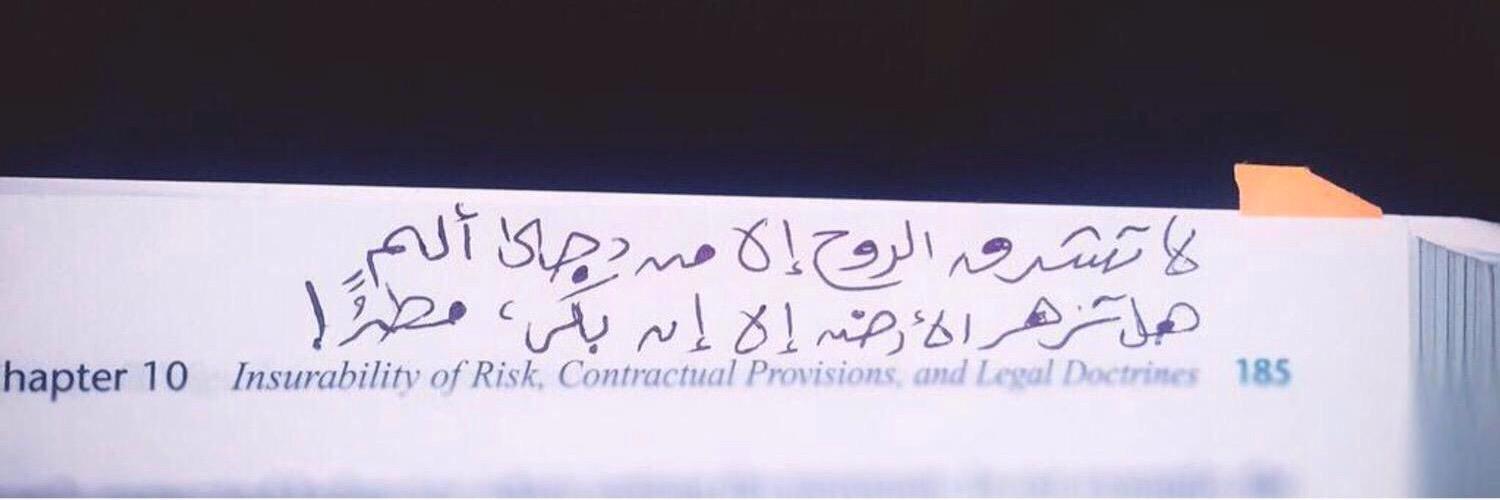 لا تشرق الروح إلا من دجى ألم
هل تزهر الأرض إلا إن بكى، مطرًا!
hapter 10 Insurability of Risk, Contractual Provisions, and Legal Doctrines 185